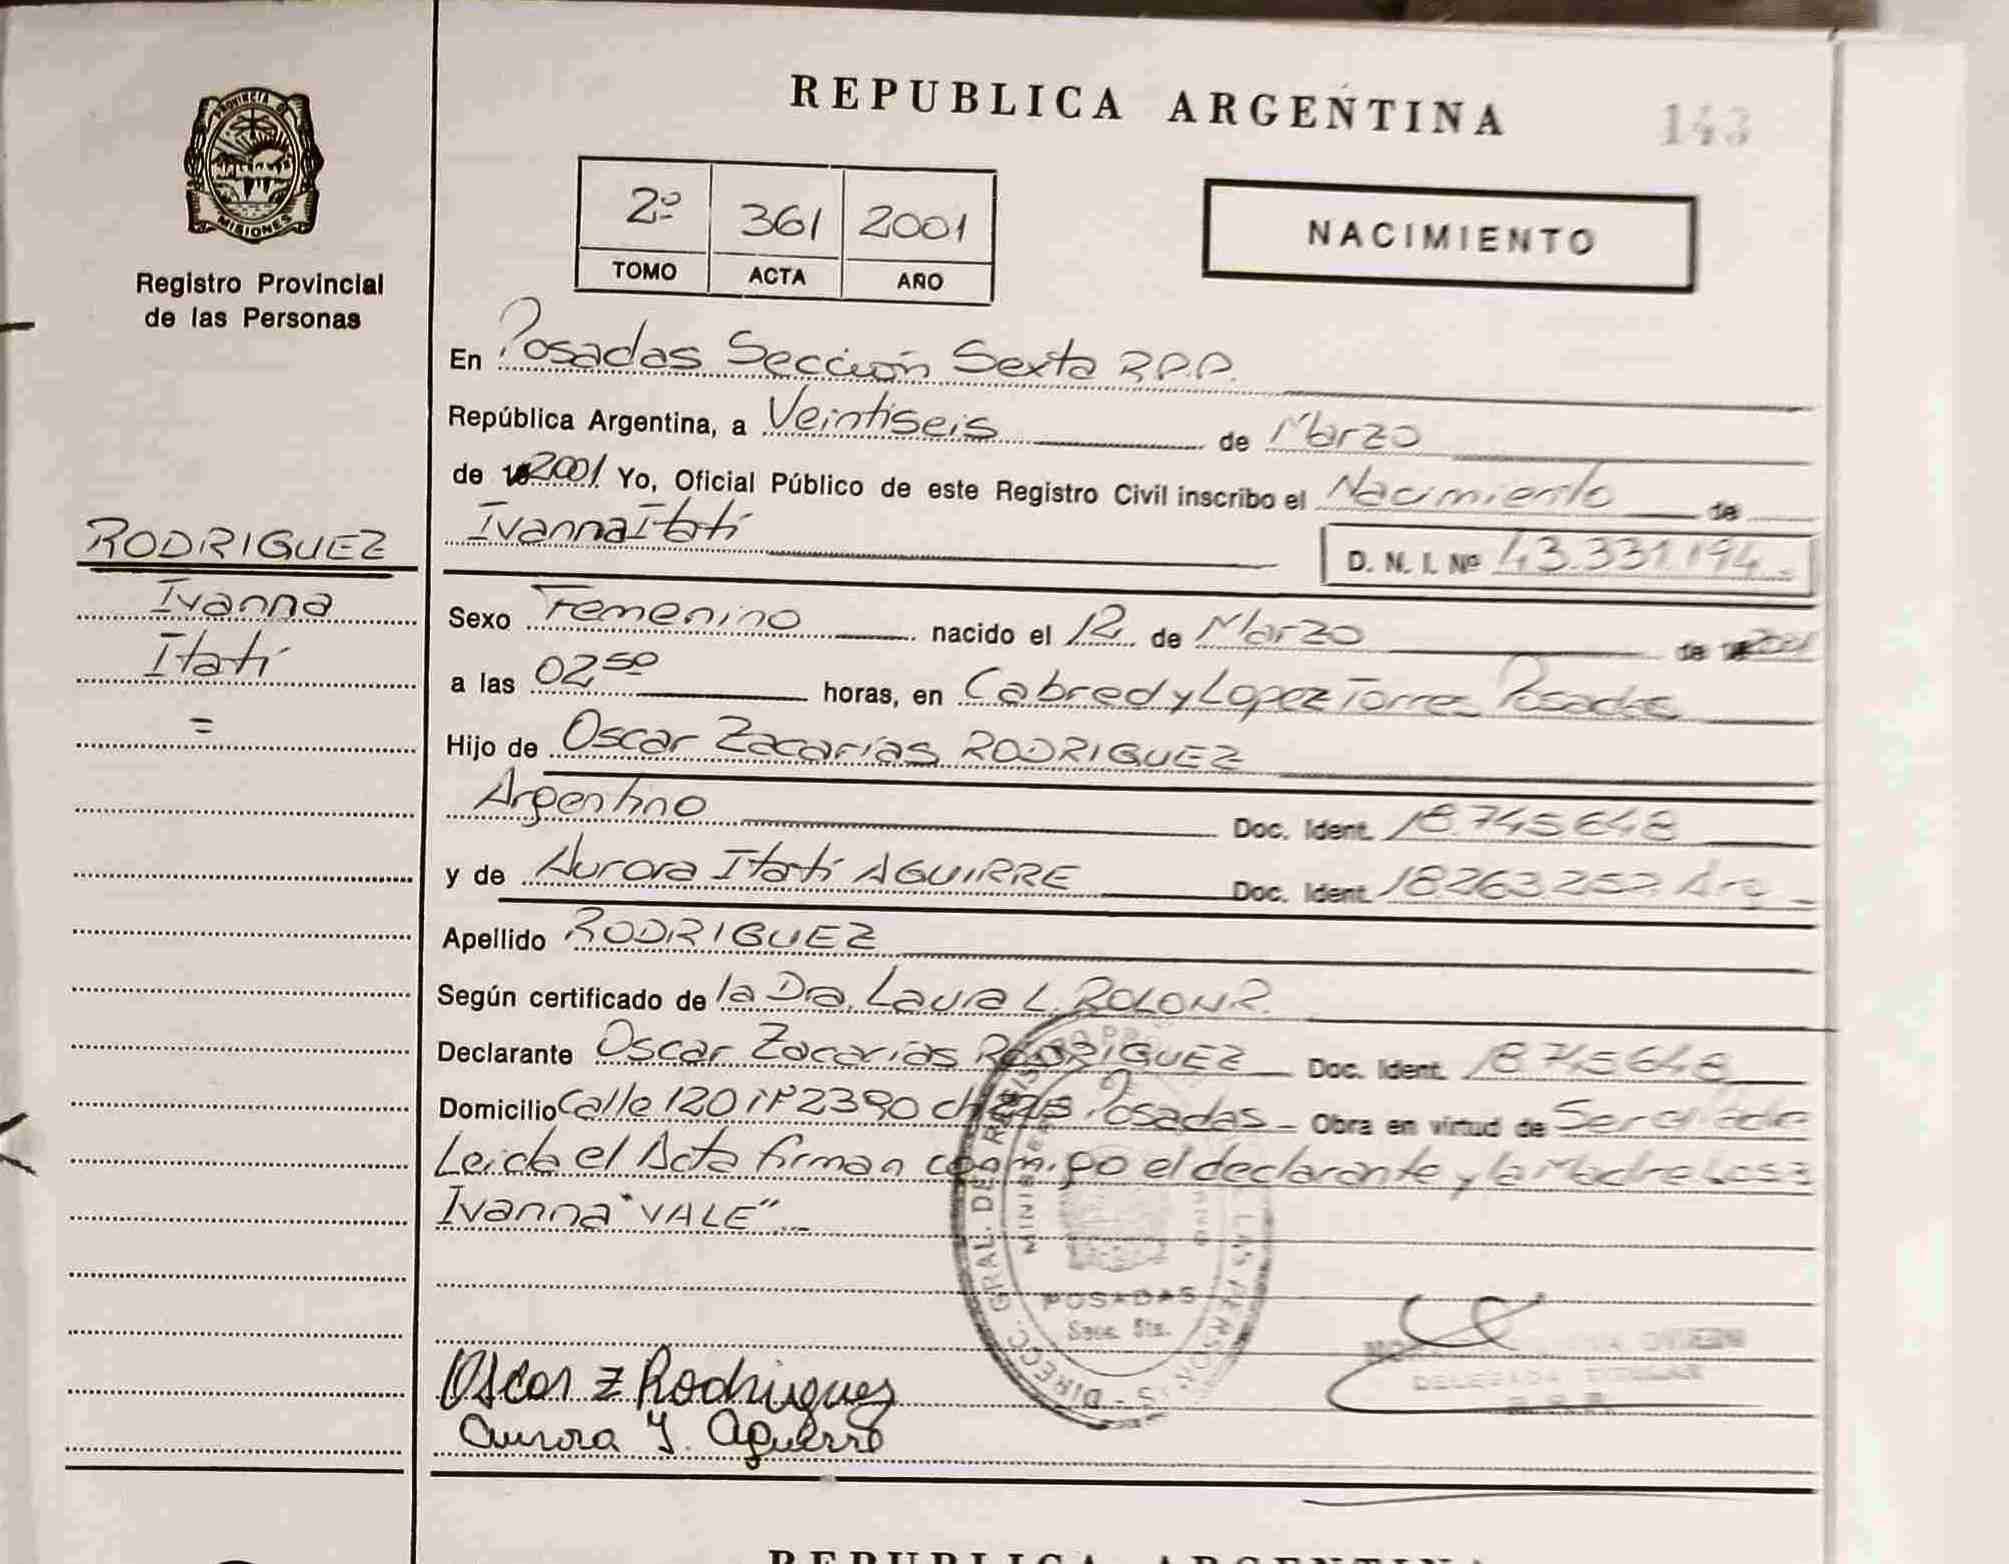 REPUBLICA ARGENTINA
143
PROVINCIA DE
MISIONES
Registro Provincial
de las Personas
2º 361 2001
TOMO ACTA AÑO
NACIMIENTO
En Posadas Sección Sexta R.P.P.
República Argentina, a Veintiseis de Marzo
de 2001 Yo, Oficial Público de este Registro Civil inscribo el Nacimiento de
Ivanna Itatí
D. N. I. Nº 43.331.194.-
RODRIGUEZ
Ivanna
Itatí
=
Sexo Femenino nacido el 12 de Marzo de 2001
a las 02,50 horas, en Cabred y Lopez Torres Posadas
Hijo de Oscar Zacarías RODRIGUEZ
Argentino Doc. Ident. 18.745648
y de Aurora Itatí AGUIRRE Doc. Ident. 18263.252 Arg
Apellido RODRIGUEZ
Según certificado de la Dra. Laura L. ROLON R.
Declarante Oscar Zacarías RODRIGUEZ Doc. Ident. 18.745648
Domicilio Calle 120 Nº 2390 Posadas - Obra en virtud de Ser el
Leida el Acta firman conmigo el declarante y la Madre
Ivanna "VALE"
DIRECC. GRAL. DE LAS PERSONAS
POSADAS
Secc. Sta.
DELEGADA TITULAR
R.P.P.
Oscar Z Rodriguez
Aurora I. Aguirre
REPUBLICA ARGENTINA